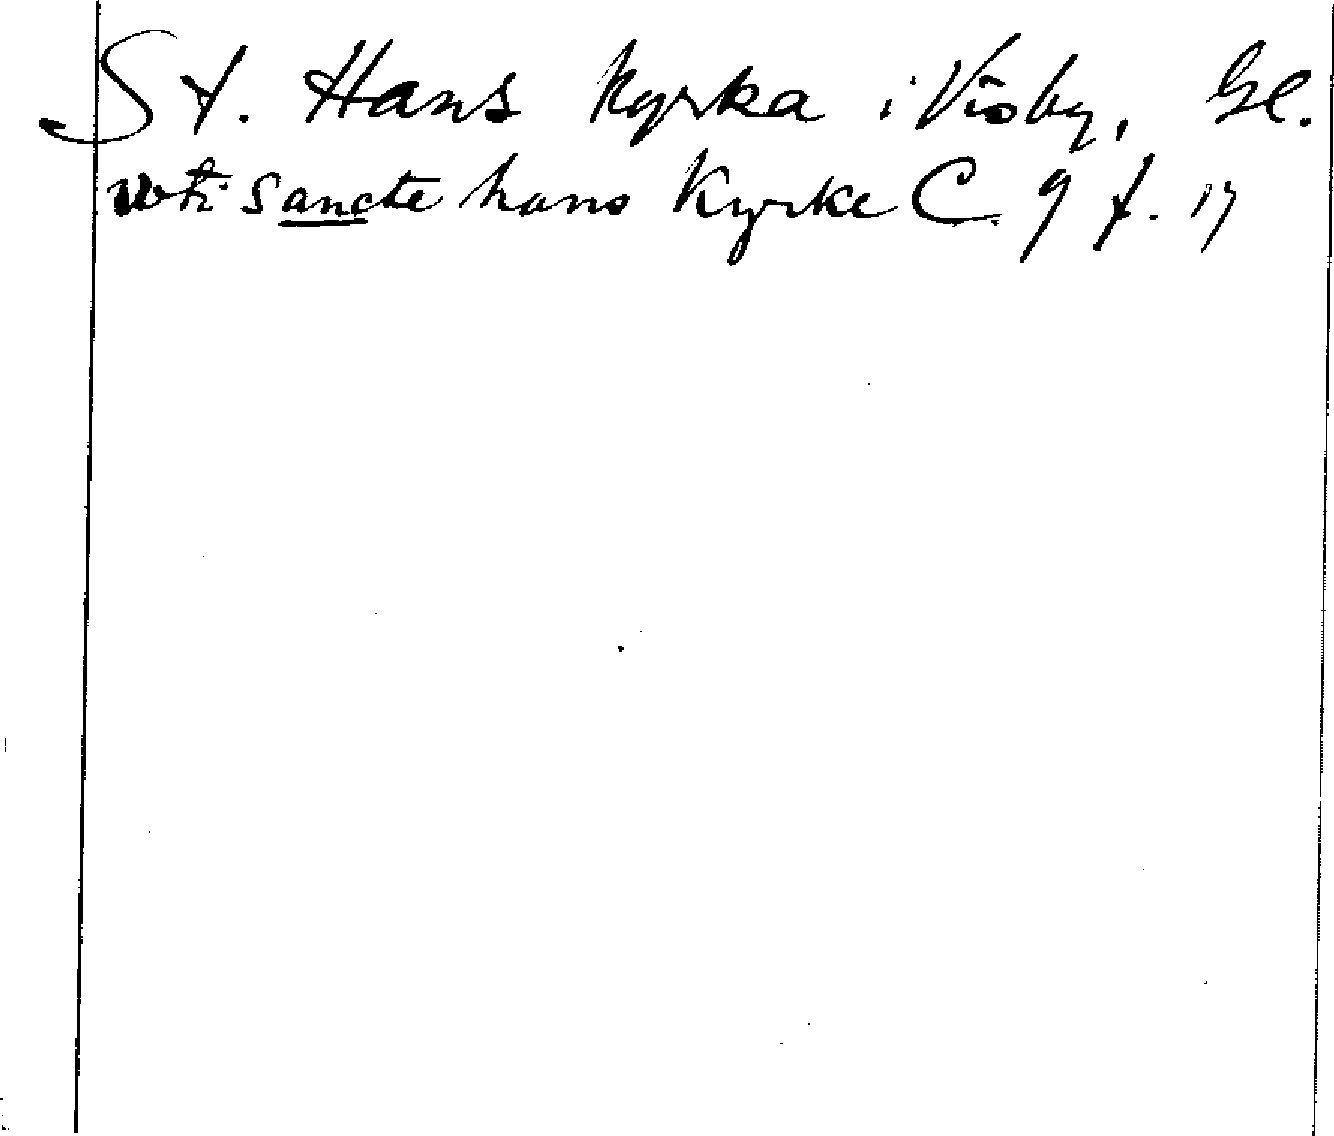 St. Hans kyrka i Visby, Gl.
vti sancte hans Kyrke C 9 f. 17